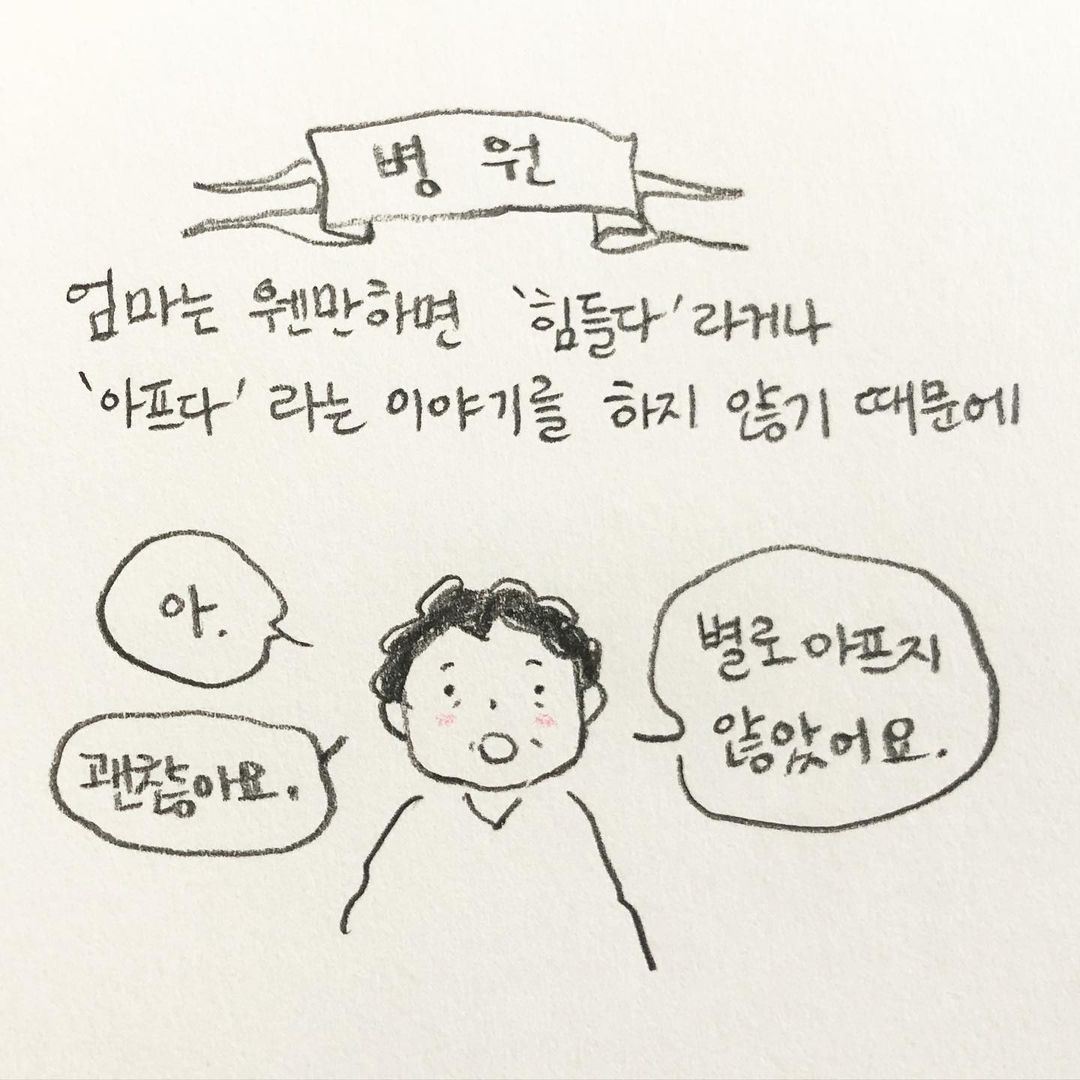 병 원
엄마는 웬만하면 '힘들다'라거나
'아프다'라는 이야기를 하지 않기 때문에
아.
괜찮아요.
별로 아프지
않았어요.